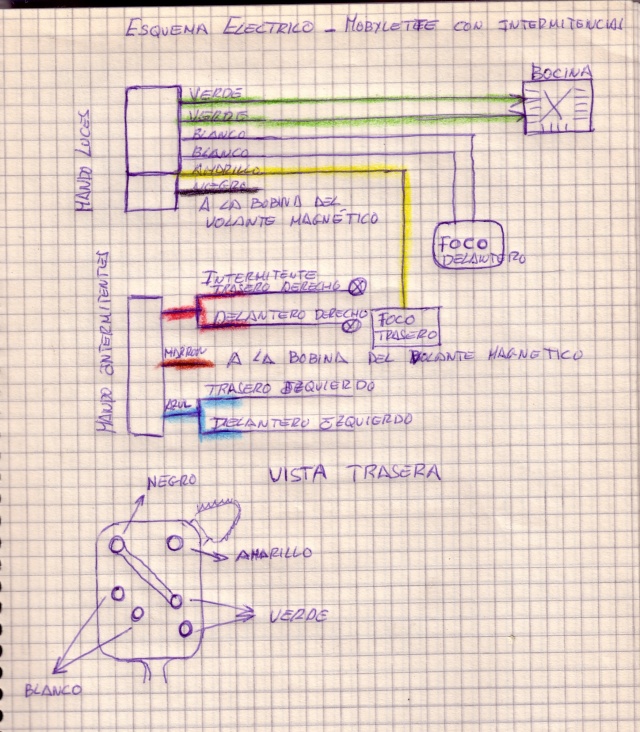 ESQUEMA ELECTRICO - MOBYLETTE CON INTERMITENCIAS
BOCINA
MANDO LUCES
VERDE
VERDE
BLANCO
BLANCO
AMARILLO
NEGRO
A LA BOBINA DEL
VOLANTE MAGNÉTICO
FOCO
DELANTERO
MANDO INTERMITENTES
INTERMITENTE
TRASERO DERECHO
DELANTERO DERECHO
FOCO
TRASERO
MARRON
A LA BOBINA DEL VOLANTE MAGNETICO
AZUL
TRASERO IZQUIERDO
DELANTERO IZQUIERDO
VISTA TRASERA
NEGRO
AMARILLO
VERDE
BLANCO